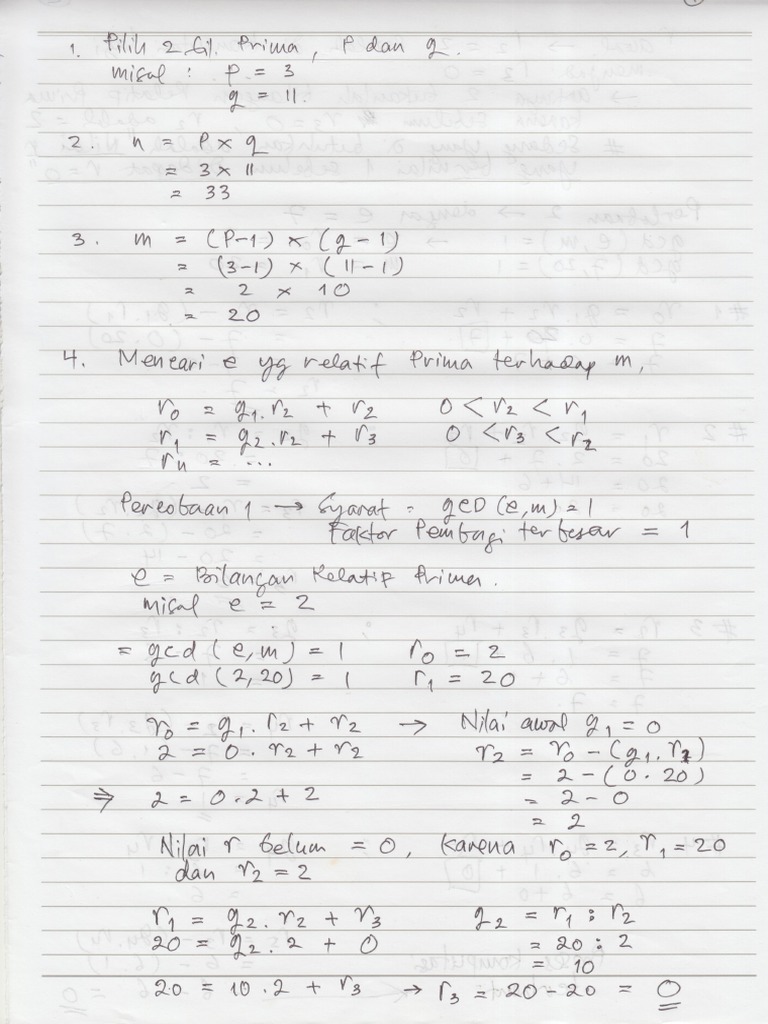 1. Pilih 2 bil. Prima, P dan q.
misal : P = 3
q = 11.
2. n = P x q
= 3 x 11
= 33
3. m = (P-1) x (q-1)
= (3-1) x (11-1)
= 2 x 10
= 20
4. Mencari e yg relatif Prima terhadap m,
r0 = g1.r2 + r2 0 < r2 < r1
r1 = g2.r2 + r3 0 < r3 < r2
rn = ...
Percobaan 1 → Syarat = gcD (e,m) = 1
Faktor Pembagi terbesar = 1
e = Bilangan Relatif Prima.
misal e = 2
= gcd (e,m) = 1 r0 = 2
gcd (2,20) = 1 r1 = 20
r0 = g1. r2 + r2 → Nilai awal g1 = 0
2 = 0. r2 + r2 r2 = r0 - (g1. r1)
= 2 - (0.20)
⇒ 2 = 0.2 + 2 = 2 - 0
= 2
Nilai r belum = 0, karena r0 = 2, r1 = 20
dan r2 = 2
r1 = g2. r2 + r3 g2 = r1 : r2
20 = g2. 2 + 0 = 20 : 2
= 10
20 = 10.2 + r3 → r3 = 20 - 20 = 0